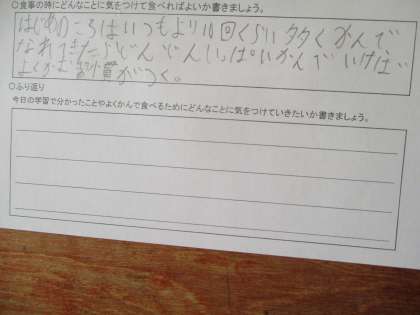 ○食事の時にどんなことに気をつけて食べればよいか書きましょう。
はじめのころはいつもより10回くらい多くかんで、
なれてきたらどんどんいっぱいかんでいけば
よくかむ習慣がつく。
○ふり返り
今日の学習で分かったことやよくかんで食べるためにどんなことに気をつけていきたいか書きましょう。